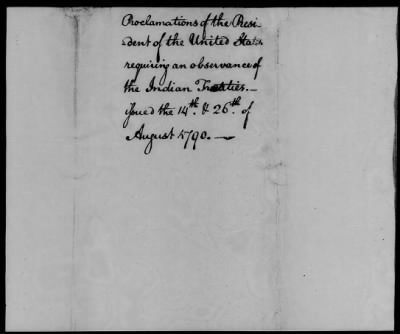 Proclamations of the Presi-
dent of the United States
requiring an observance of
the Indian Treaties.—
issued the 14th. & 26th. of
August 1790.—